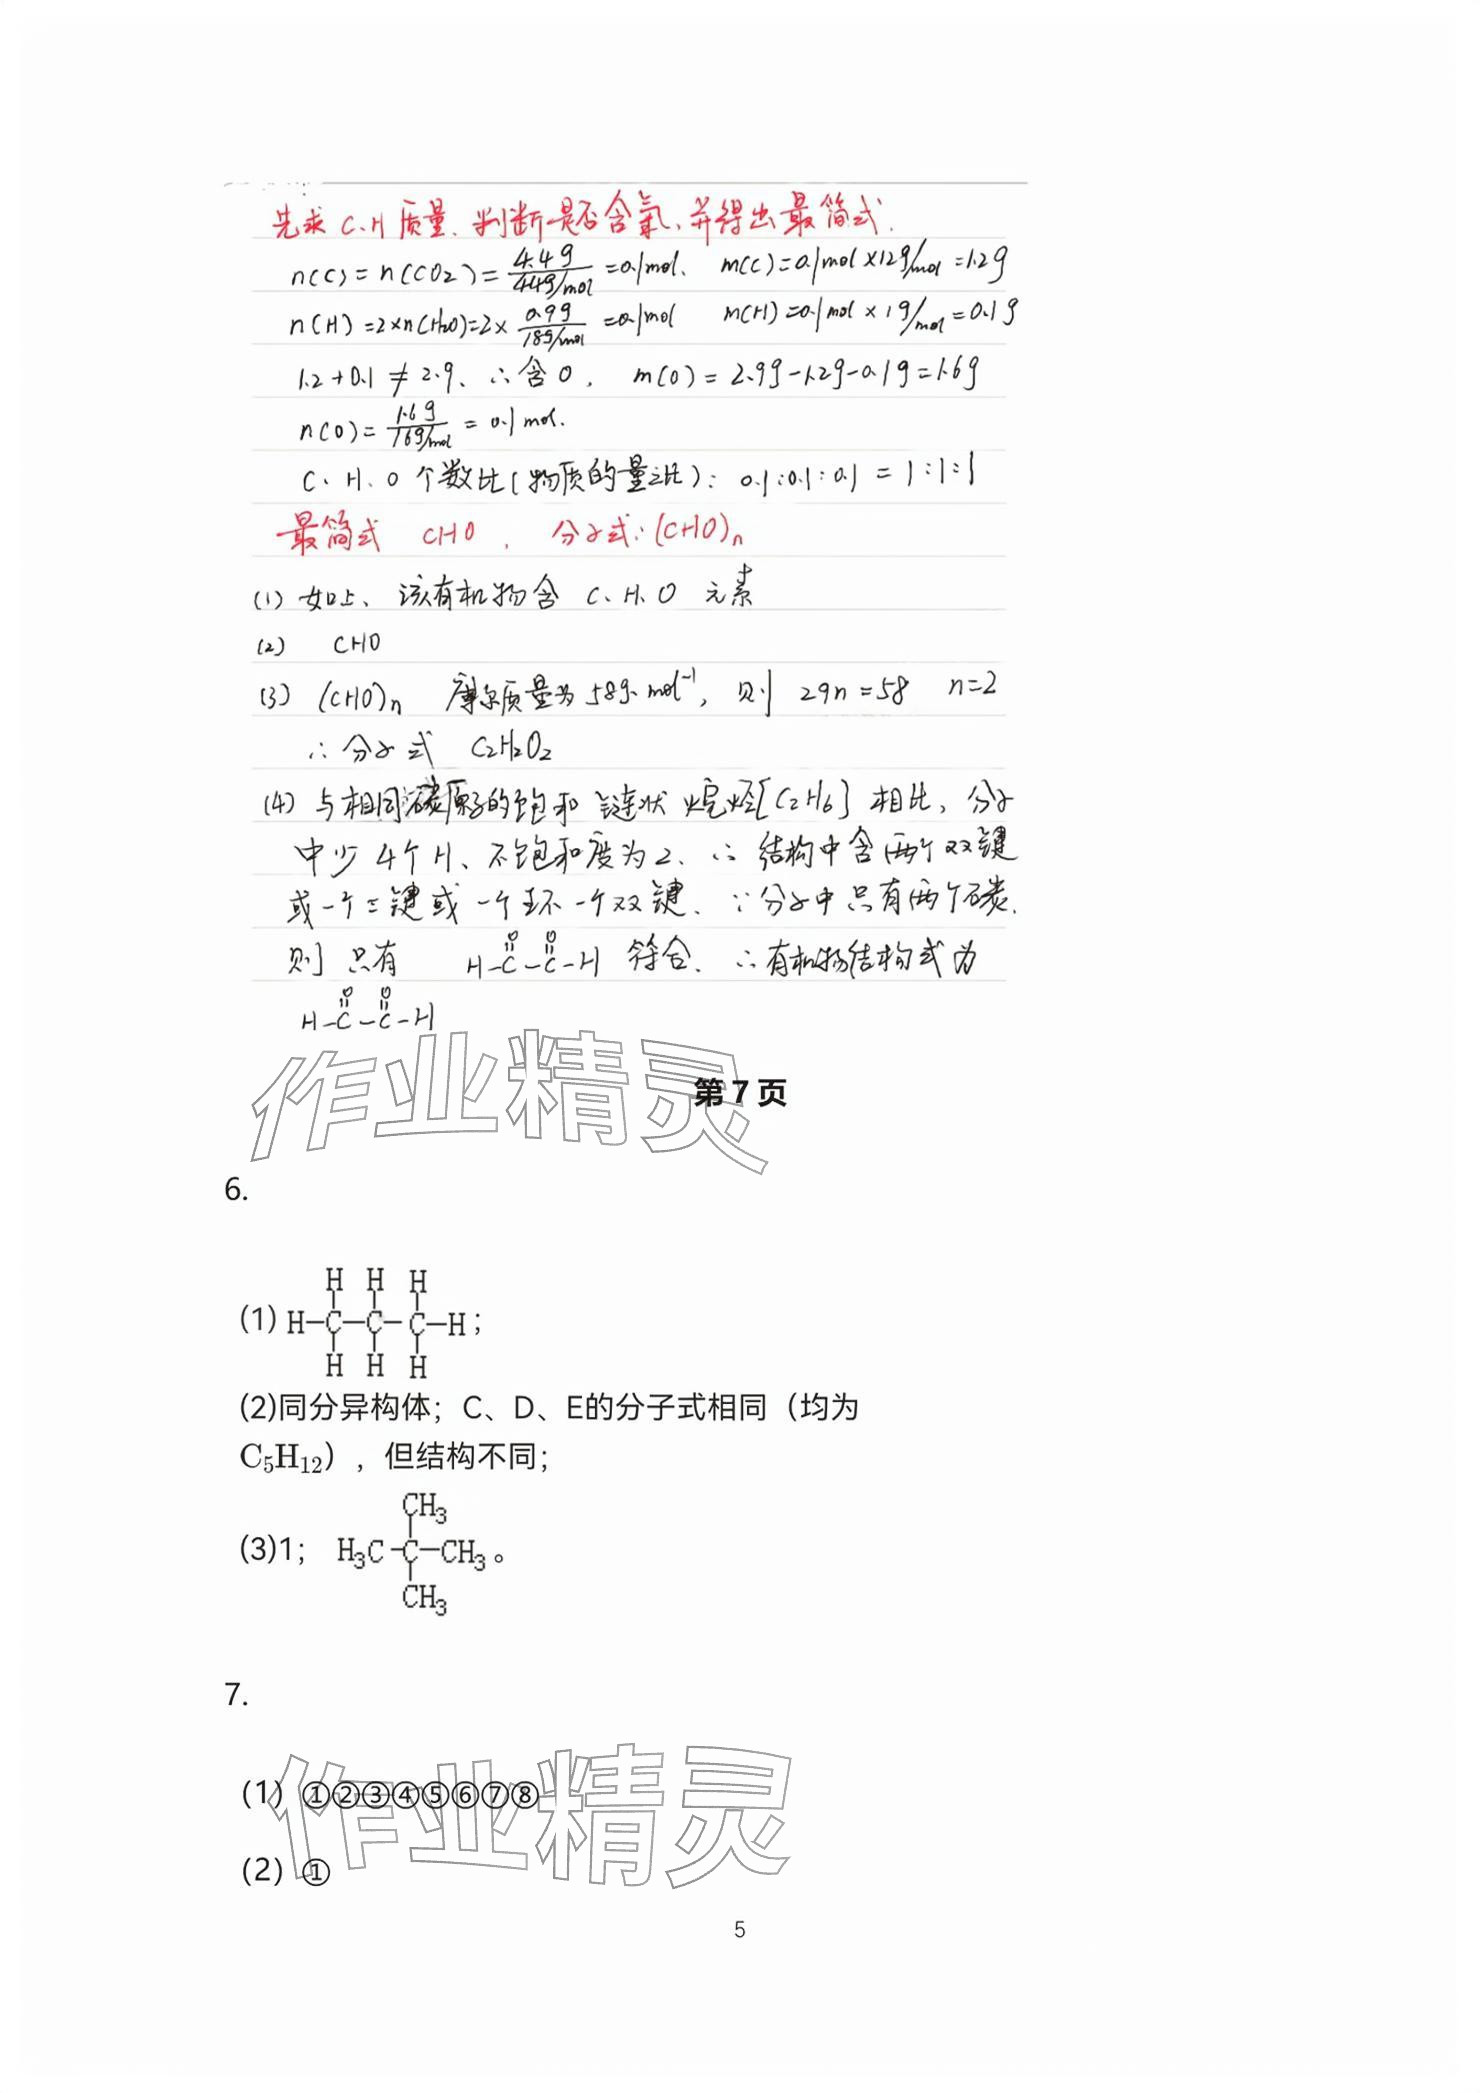 先求 C、H 质量、判断是否含氧、并得出最简式.
n(C) = n(CO2) = 4.4g / 44g/mol = 0.1mol. m(C)=0.1mol×12g/mol=1.2g
n(H)=2×n(H2O)=2× 0.9g / 18g/mol =0.1mol m(H)=0.1mol×1g/mol=0.1g
1.2+0.1 ≠ 2.9、∴含O, m(O) = 2.9g-1.2g-0.1g=1.6g
n(O)= 1.6g / 16g/mol = 0.1mol.
C、H、O 个数比(物质的量之比): 0.1:0.1:0.1 = 1:1:1
最简式 CHO , 分子式:(CHO)n
(1) 如上、该有机物含 C、H、O 元素
(2) CHO
(3) (CHO)n 摩尔质量为58g·mol⁻¹, 则 29n=58 n=2
∴分子式 C2H2O2
(4) 与相同碳原子的饱和链状烷烃[C2H6]相比,分子
中少4个H、不饱和度为2、∴结构中含两个双键
或一个三键或一个环一个双键、∵分子中只有两个碳.
则只有 H-C(=O)-C(=O)-H 符合、∴有机物结构式为
H-C(=O)-C(=O)-H
作业精灵
第7页
6.
H H H
(1) H-C-C-C-H;
H H H
(2)同分异构体；C、D、E的分子式相同（均为
C₅H₁₂），但结构不同；
CH₃
(3)1； H₃C-C-CH₃。
CH₃
7.
作业精灵
(1) ①②③④⑤⑥⑦⑧
(2) ①
5